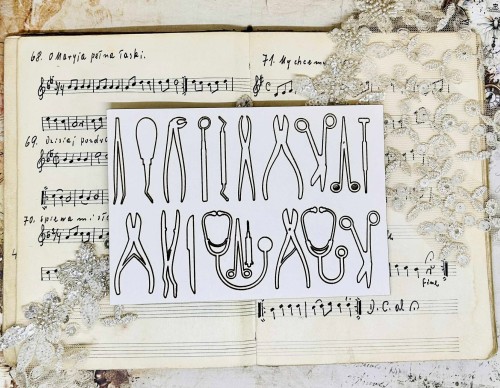 68. O Maryja pełna łaski.
69. Dzisiaj
70. Śpiewa
71. My chcemy
Fine
D.C. al